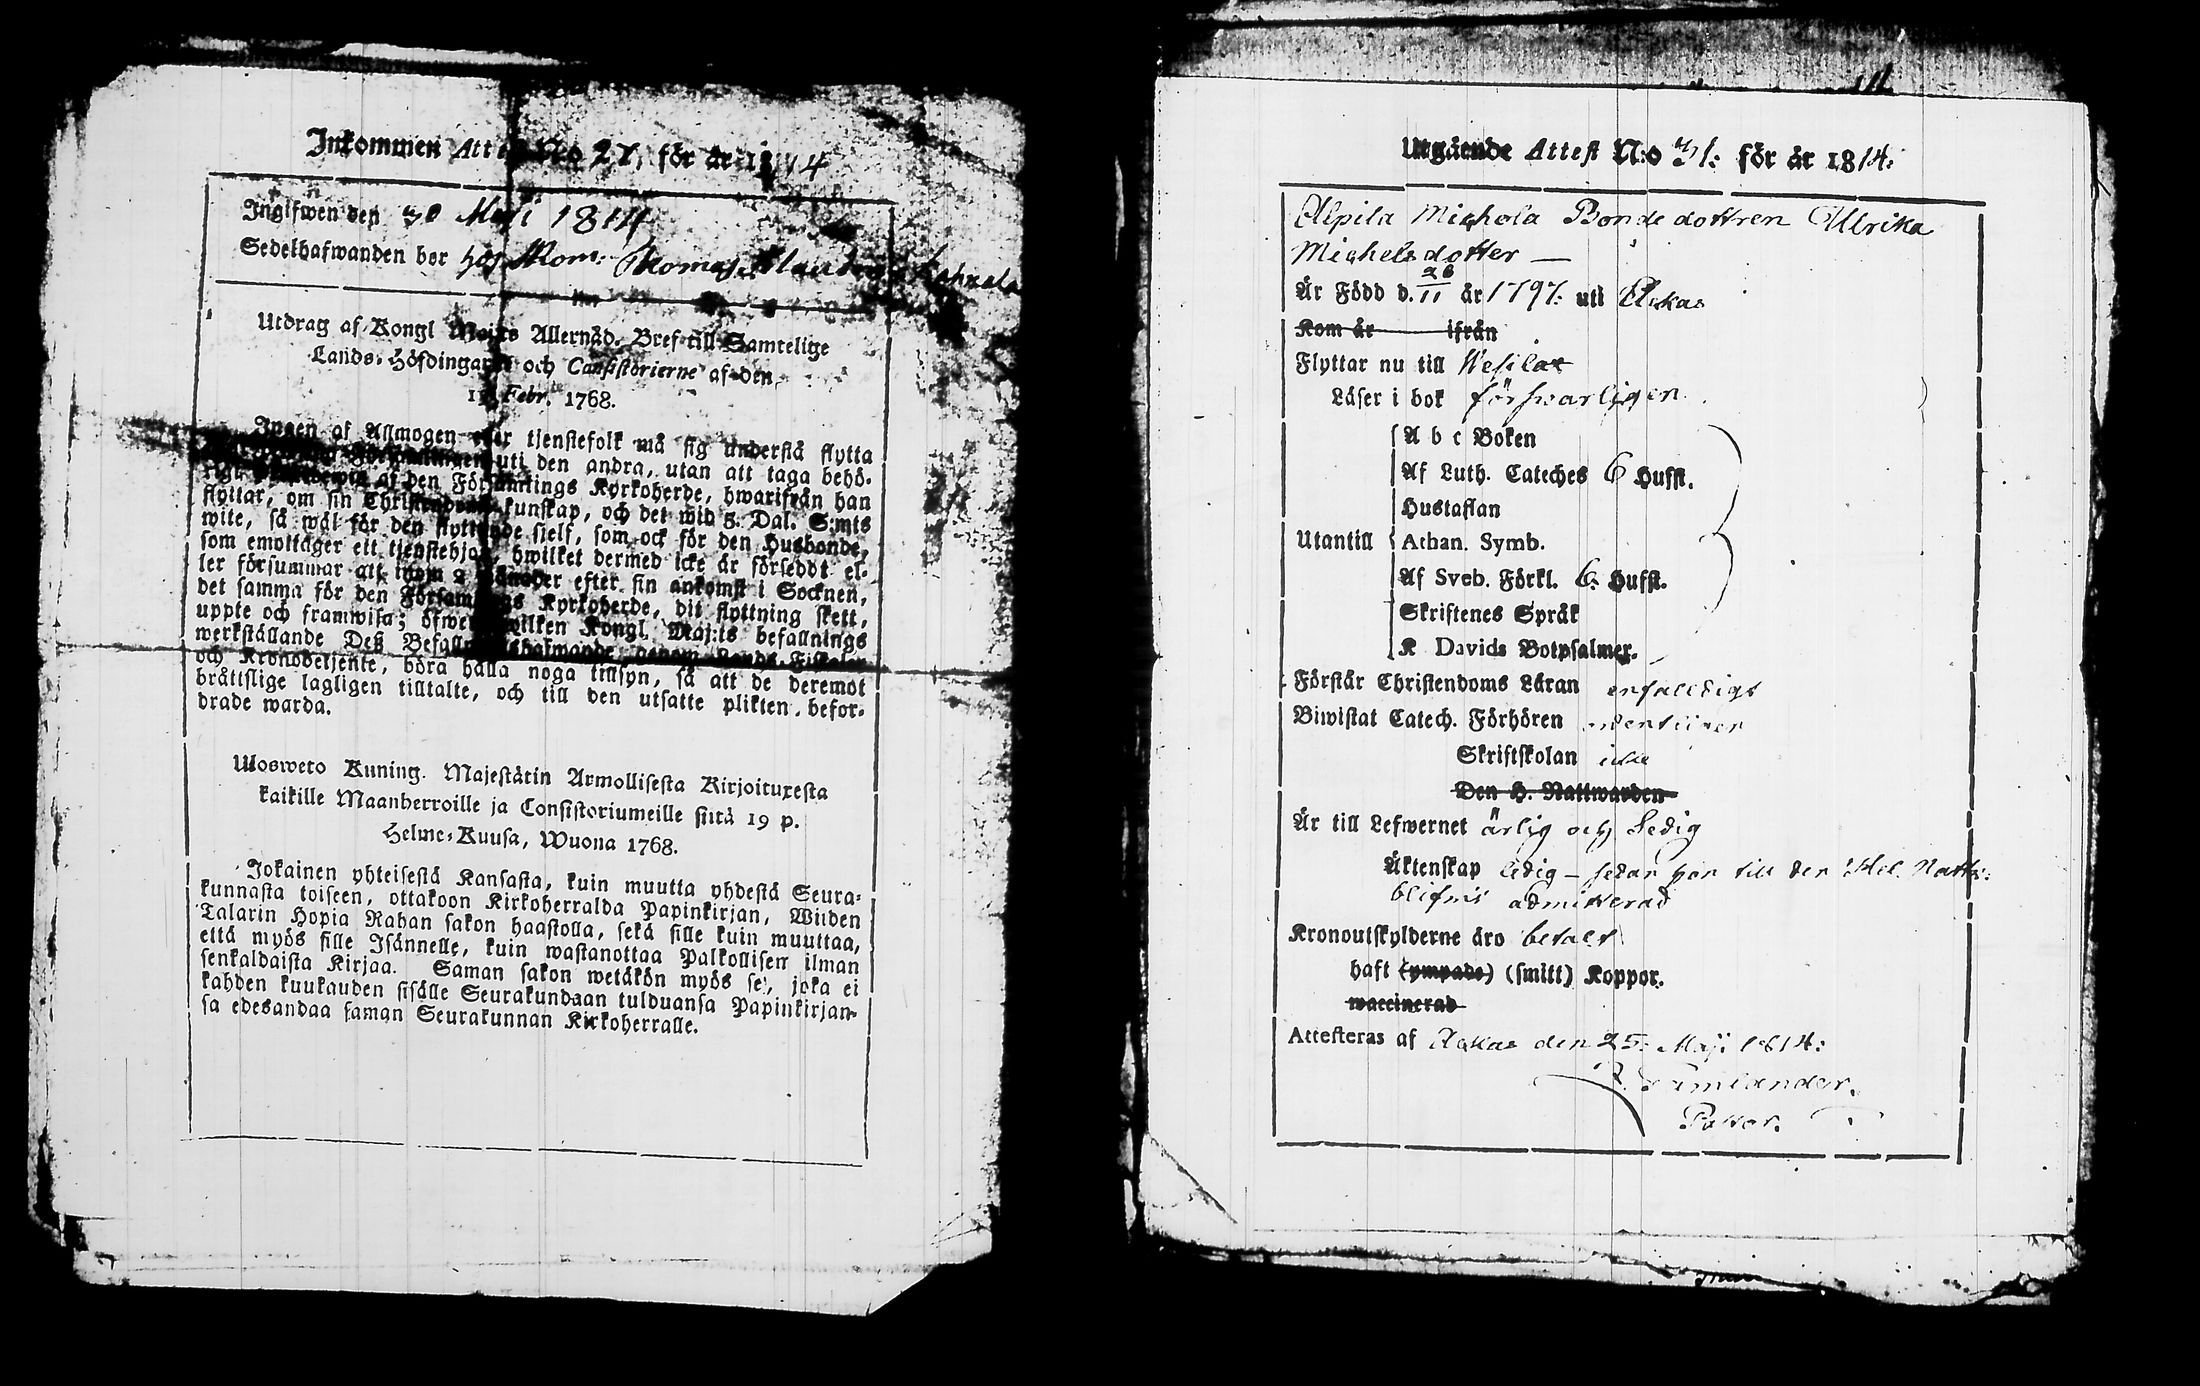 Inkommen Attest No 27, för år 1814
Ingifwen den 30 Maji 1814
Sedelhafwanden bor hos Kom: Thomas
Utdrag af Kongl Maj:ts Allernåd. Bref till Samtelige
Lands-Höfdingarne och Consistorierne af den
19 Febr. 1768.
Ingen af Allmogen eller tjenstefolk må sig understå flytta
uti den andra, utan att taga behö-
af den Församlings Kyrkoherde, hwarifrån han
flyttar, om sin Christendoms kunskap, och det wid 5. Dal. S:mts
wite, så wäl för den flyttande sjelf, som ock för den Husbonde,
som emottager ett tjenstehjon, hwilket dermed icke är förseddt el-
ler försummar att inom 2 Månader efter sin ankomst i Socknen,
det samma för den Församlings Kyrkoherde, dit flyttning skett,
uppte och framwisa; öfwer hwilken Kongl. Maj:ts befallnings
werkställande Deß Befallningshafwande, genom Lands-Fiskaler
och Kronobetjente, böra hålla noga tillsyn, så att de deremot
bråttslige lagligen tilltalte, och till den utsatte plikten befor-
drade warda.
Ulosweto Kuning. Majestätin Armollisesta Kirjoituxesta
kaikille Maanherroille ja Consistoriumeille siitä 19 p.
Helme-Kuusa, Wuona 1768.
Jokainen yhteisestä Kansasta, kuin muutta yhdestä Seura-
kunnasta toiseen, ottakoon Kirkoherralda Papinkirjan, Wiiden
Talarin Hopia Rahan sakon haastolla, sekä sille kuin muuttaa,
että myös sille Isännelle, kuin wastanottaa Palkollisen ilman
senkaldaista Kirjaa. Saman sakon wetäkön myös se, joka ei
kahden kuukauden sisälle Seurakundaan tulduansa Papinkirjan-
sa edesandaa saman Seurakunnan Kirkoherralle.
Utgående Attest N:o 31: för år 1814:
Alpila Michola Bonde dottren Ullrika
Michelsdotter —
Är Född d. 26/11 år 1797: uti Ackas
Kom år ifrån
Flyttar nu till Wesilax
Läser i bok förswarligen
A b c Boken
Af Luth. Cateches 6 Hufst.
Hustaflan
Utantill Athan. Symb.
Af Sveb. Förkl. 6: Hufst.
Skriftenes Språk
K Davids Botpsalmer.
Förstår Christendoms Läran enfalldigt
Biwistat Catech. Förhören ordentligen
Skriftskolan icke
Den H. Nattwarden
Är till Lefwernet ärlig och Sedig
Äktenskap ledig – sedan hon till den Hel. Nattw:
blifwit admitterad
Kronoutskylderne äro betalt
haft (ympade) (smitt) Koppor.
waccinerad
Attesteras af Ackas den 25: Maji 1814:
Pastor.